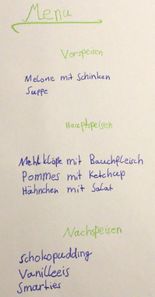 Menu
Vorspeisen
Melone mit Schinken
Suppe
Hauptspeisen
Mehlklöße mit Bauchfleisch
Pommes mit Ketchup
Hähnchen mit Salat
Nachspeisen
Schokopudding
Vanilleeis
Smarties